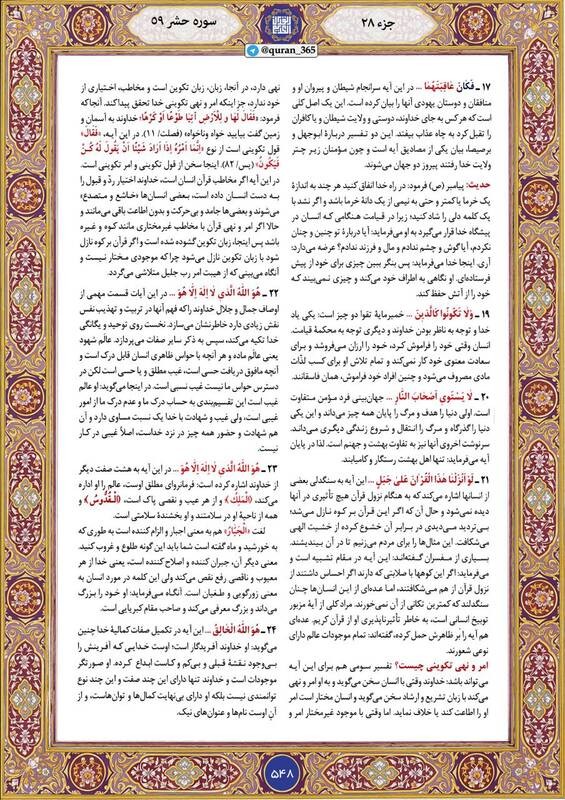 جزء ۲۸
سوره حشر ۵۹
@quran_365
۱۷ـ فَكَانَ عَاقِبَتَهُمَا ... در این آیه سرانجام شیطان و پیروان او و
منافقان و دوستان یهودی آنها را بیان کرده است. این یک اصل کلی
است که هر کس به جای خداوند، دوستی و ولایت شیطان و یا کافران
را تقبل کرد به چاه عذاب بیفتد. این دو تفسیر دربارهٔ ابوجهل و
برصیصا، بیان یکی از مصادیق آیه است و چون مؤمنان زیر چتر
ولایت خدا رفتند پیروز دو جهان می‌شوند.
حدیث: پیامبر (ص) فرمود: در راه خدا انفاق کنید هر چند به اندازهٔ
یک خرما یا کمتر و حتی به نیمی از یک دانهٔ خرما باشد و اگر نشد با
یک کلمه دلی را شاد کنید؛ زیرا در قیامت هنگامی که انسان در
پیشگاه خدا قرار می‌گیرد به او می‌فرماید: آیا دربارهٔ تو چنین و چنان
نکردم، آیا گوش و چشم ندادم و مال و فرزند ندادم؟ عرضه می‌دارد:
آری. اینجا خدا می‌فرماید: پس بنگر ببین چیزی برای خود از پیش
فرستاده‌ای. او نگاهی به اطراف خود می‌کند و چیزی نمی‌بیند که
خود را از آتش حفظ کند.
۱۹ـ وَلَا تَكُونُوا كَالَّذِينَ ... خمیرمایهٔ تقوا دو چیز است: یکی یاد
خدا و توجه به ناظر بودن خداوند و دیگری توجه به محکمهٔ قیامت.
انسان وقتی خود را فراموش کرد، خود را ارزان می‌فروشد و برای
سعادت معنوی خود کار نمی‌کند و تمام تلاش او برای کسب لذّات
مادی مصروف می‌شود و چنین افراد خود فراموش، همان فاسقانند.
۲۰ـ لَا يَسْتَوِي أَصْحَابُ النَّارِ ... جهان‌بینی فرد مؤمن متفاوت
است. اولی دنیا را هدف و مرگ را پایان همه چیز می‌داند و این یکی
دنیا را گذرگاه و مرگ را انتقال و شروع زندگی دیگری می‌داند.
سرنوشت اخروی آنها نیز به تفاوت بهشت و جهنم است. لذا در پایان
آیه می‌فرماید: تنها اهل بهشت رستگار و کامیابند.
۲۱ـ لَوْ أَنْزَلْنَا هَذَا الْقُرْآنَ عَلَىٰ جَبَلٍ ... این آیه به سنگدلی بعضی
از انسانها اشاره می‌کند که به هنگام نزول قرآن هیچ تأثیری در آنها
دیده نمی‌شود و حال آن که اگر این قرآن بر کوه نازل می‌شد؛
بی‌تردید می‌دیدی در برابر آن خشوع کرده از خشیت الهی
می‌شکافت. این مثال‌ها را برای مردم می‌زنیم تا در آن بیندیشند.
بسیاری از مفسران گفته‌اند: این آیه در مقام تشبیه است و
می‌فرماید: اگر این کوهها با صلابتی که دارند اگر احساس داشتند از
نزول قرآن از هم می‌شکافتند، اما عده‌ای از این انسان‌ها چنان
سنگدلند که کمترین تکانی از آن نمی‌خورند. مراد کلی از آیهٔ مزبور
توبیخ انسانی است، به خاطر تأثیرناپذیری او از قرآن کریم. عده‌ای
هم آیه را بر ظاهرش حمل کرده، گفته‌اند: تمام موجودات عالم دارای
نوعی شعورند.
امر و نهی تکوینی چیست؟ تفسیر سومی هم برای این آیه
می‌تواند باشد: خداوند وقتی با انسان سخن می‌گوید و به او امر و نهی
می‌کند با زبان تشریع و ارشاد سخن می‌گوید و انسان مختار است امر
او را اطاعت کند یا خلاف نماید. اما وقتی با موجود غیرمختار امر و
نهی دارد، در آنجا، زبان، زبان تکوین است و مخاطب، اختیاری از
خود ندارد، جز اینکه امر و نهی تکوینی خدا تحقق پیدا کند. آنجا که
فرمود: «فَقَالَ لَهَا وَ لِلْأَرْضِ اُتِيَا طَوْعًا أَوْ كَرْهًا»؛ خداوند به آسمان و
زمین گفت بیایید خواه و ناخواه (فصلت/ ۱۱). در این آیه، «فَقَالَ»
قول تکوینی است از نوع «إِنَّمَا أَمْرُهُ إِذَا أَرَادَ شَيْئًا أَنْ يَقُولَ لَهُ كُنْ
فَيَكُونُ» (یس/ ۸۲). اینجا سخن از قول تکوینی و امر تکوینی است.
در این آیه اگر مخاطب قرآن انسان است، خداوند اختیار ردّ و قبول را
به دست انسان داده است، بعضی انسان‌ها «خاشع و متصدع»
می‌شوند و بعضی‌ها جامد و بی‌حرکت و بدون اطاعت باقی می‌مانند و
حالا اگر امر و نهی قرآن با مخاطب غیرمختاری مانند کوه و غیره
باشد پس اینجا، زبان تکوین گشوده شده است و اگر قرآن بر کوه نازل
شود با زبان تکوین نازل می‌شود چرا که موجودی مختار نیست و
آنگاه می‌بینی که از هیبت امر رب جلیل متلاشی می‌گردد.
۲۲ـ هُوَ اللهُ الَّذِي لَا إِلَهَ إِلَّا هُوَ ... در این آیات قسمت مهمی از
اوصاف جمال و جلال خداوند را که فهم آنها در تربیت و تهذیب نفس
نقش زیادی دارد خاطرنشان می‌سازد. نخست روی توحید و یگانگی
خدا تکیه می‌کند، سپس به ذکر سایر صفات می‌پردازد. عالم شهود
یعنی عالَم ماده و هر آنچه با حواس ظاهری انسان قابل درک است و
آنچه مافوق دریافت حسی است، غیب مطلق و یا حسی است لکن در
دسترس حواس ما نیست غیب نسبی است. در اینجا می‌گوید: او عالم
غیب است این تقسیم‌بندی به حساب درک ما و عدم درک ما از امور
غیبی است، ولی غیب و شهادت با خدا یک نسبت مساوی دارد و آن
هم شهادت و حضور همه چیز در نزد خداست، اصلاً غیبی در کار
نیست.
۲۳ـ هُوَ اللهُ الَّذِي لَا إِلَهَ إِلَّا هُوَ ... در این آیه به هشت صفت دیگر
از خداوند اشاره کرده است: فرمانروای مطلق اوست، عالم را او اداره
می‌کند، ﴿الْمَلِكُ﴾ و از هر عیب و نقصی پاک است، ﴿الْقُدُّوسُ﴾ و
همه از ناحیهٔ او در سلامتند و او بخشندهٔ سلامتی است.
لغت «الْجَبَّارُ» هم به معنی اجبار و الزام کننده است به طوری که
به خورشید و ماه گفته است شما باید این گونه طلوع و غروب کنید.
معنی دیگر آن، جبران کننده و اصلاح کننده است، یعنی خدا از هر
معیوب و ناقصی رفع نقص می‌کند ولی این کلمه در مورد انسان به
معنی زورگویی و طغیان است. آنگاه می‌فرماید: او خود را بزرگ
می‌داند و بزرگ معرفی می‌کند و صاحب مقام کبریایی است.
۲۴ـ هُوَ اللهُ الْخَالِقُ ... این آیه در تکمیل صفات کمالیهٔ خدا چنین
می‌گوید: او خداوند آفریدگار است؛ اوست خدایی که آفرینش را
بی‌وجود نقشهٔ قبلی و بی‌کم و کاست ابداع کرده. او صورتگر
موجودات است و خداوند تنها دارای این چند صفت و این چند نوع
توانمندی نیست بلکه او دارای بی‌نهایت کمال‌ها و توان‌هاست، و از
آنِ اوست نام‌ها و عنوان‌های نیک.
۵۴۸